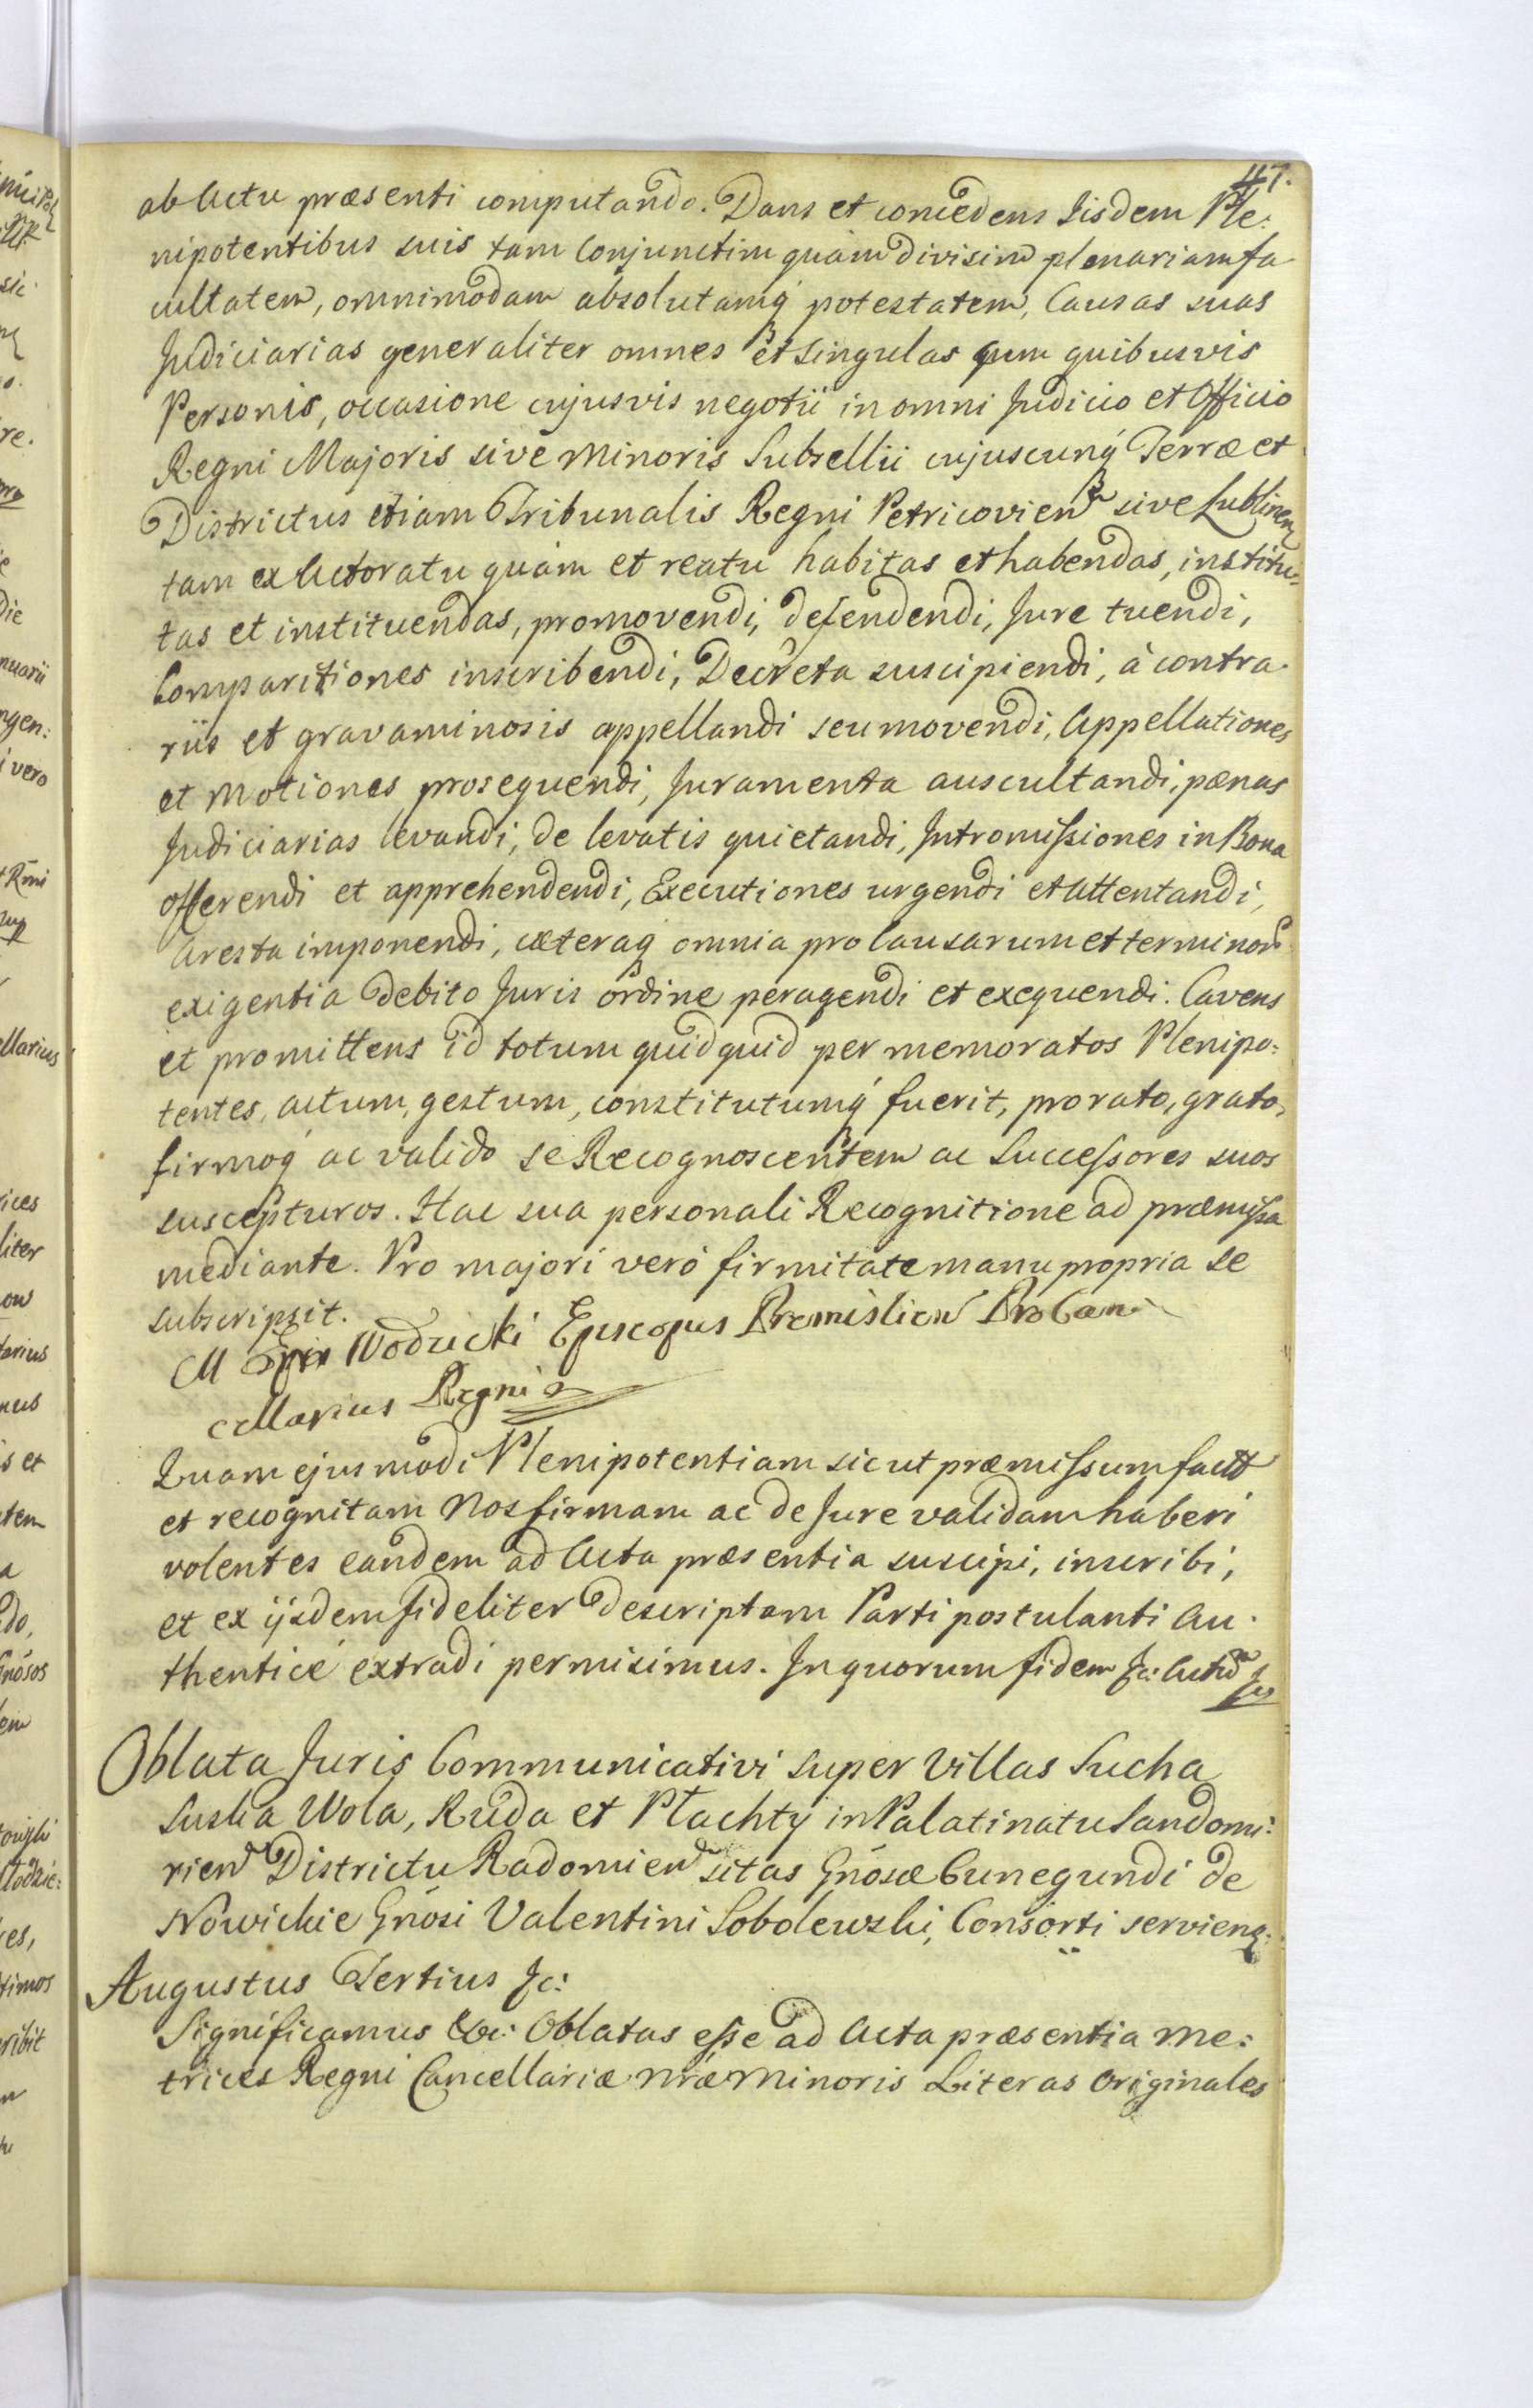 47.
ab Actu præsenti computando. Dans et concedens Iisdem Ple:
nipotentibus suis tam Conjunctim quàm divisim plenariam fa
cultatem, omnimodam absolutamq́ potestatem, Causas suas
Judiciarias generaliter omnes et singulas cum quibusvis
Personis, occasione cujusvis negotii in omni Judicio et Officio
Regni Majoris sive Minoris Subsellii cujuscunq́ Terræ et
Districtus etiam Tribunalis Regni Petricovien sive Lublinen
tam ex Actoratu quàm et reatu habitas et habendas, institu-
tas et instituendas, promovendi, defendendi, Jure tuendi,
Comparitiones inscribendi, Decreta suscipiendi, à contra-
riis et gravaminosis appellandi seu movendi, Appellationes
et Motiones prosequendi, Juramenta auscultandi, pænas
Judiciarias levandi, de levatis quietandi, Intromissiones in Bona
offerendi et apprehendendi, Executiones urgendi et Attentandi,
Aresta imponendi, cæteraq omnia pro Causarum et terminor
exigentia debito Juris ordine peragendi et exequendi. Cavens
et promittens id totum quidquid per memoratos Plenipo:
tentes, actum, gestum, constitutumq́ fuerit, pro rato, grato,
firmoq́ ac valido se Recognoscentem ac Successores suos
suscepturos. Hac sua personali Recognitione ad præmissa
mediante. Pro majori verò firmitate manu propria se
subscripsit.
M Wodzicki Episcopus Premislien ProCan-
cellarius Regni
Quam ejusmodi Plenipotentiam sicut præmissum
et recognitam Nos firmam ac de Jure validam haberi
volentes eandem ad Acta præsentia suscipi, inscribi,
et ex ijsdem fideliter descriptam Parti postulanti Au-
thenticè extradi permisimus. In quorum fidem &c:
Oblata Juris Communicativi super Villas Sucha
Suska Wola, Ruda et Płachty in Palatinatu Sandomi:
rien Districtu Radomien sitas Gnosæ Cunegundi de
Nowickie Gnosi Valentini Sobolewski, Consorti serviens:
Augustus Tertius &c:
Significamus &c: Oblatas esse ad Acta præsentia Me:
trices Regni Cancellariæ nræ Minoris Literas originales